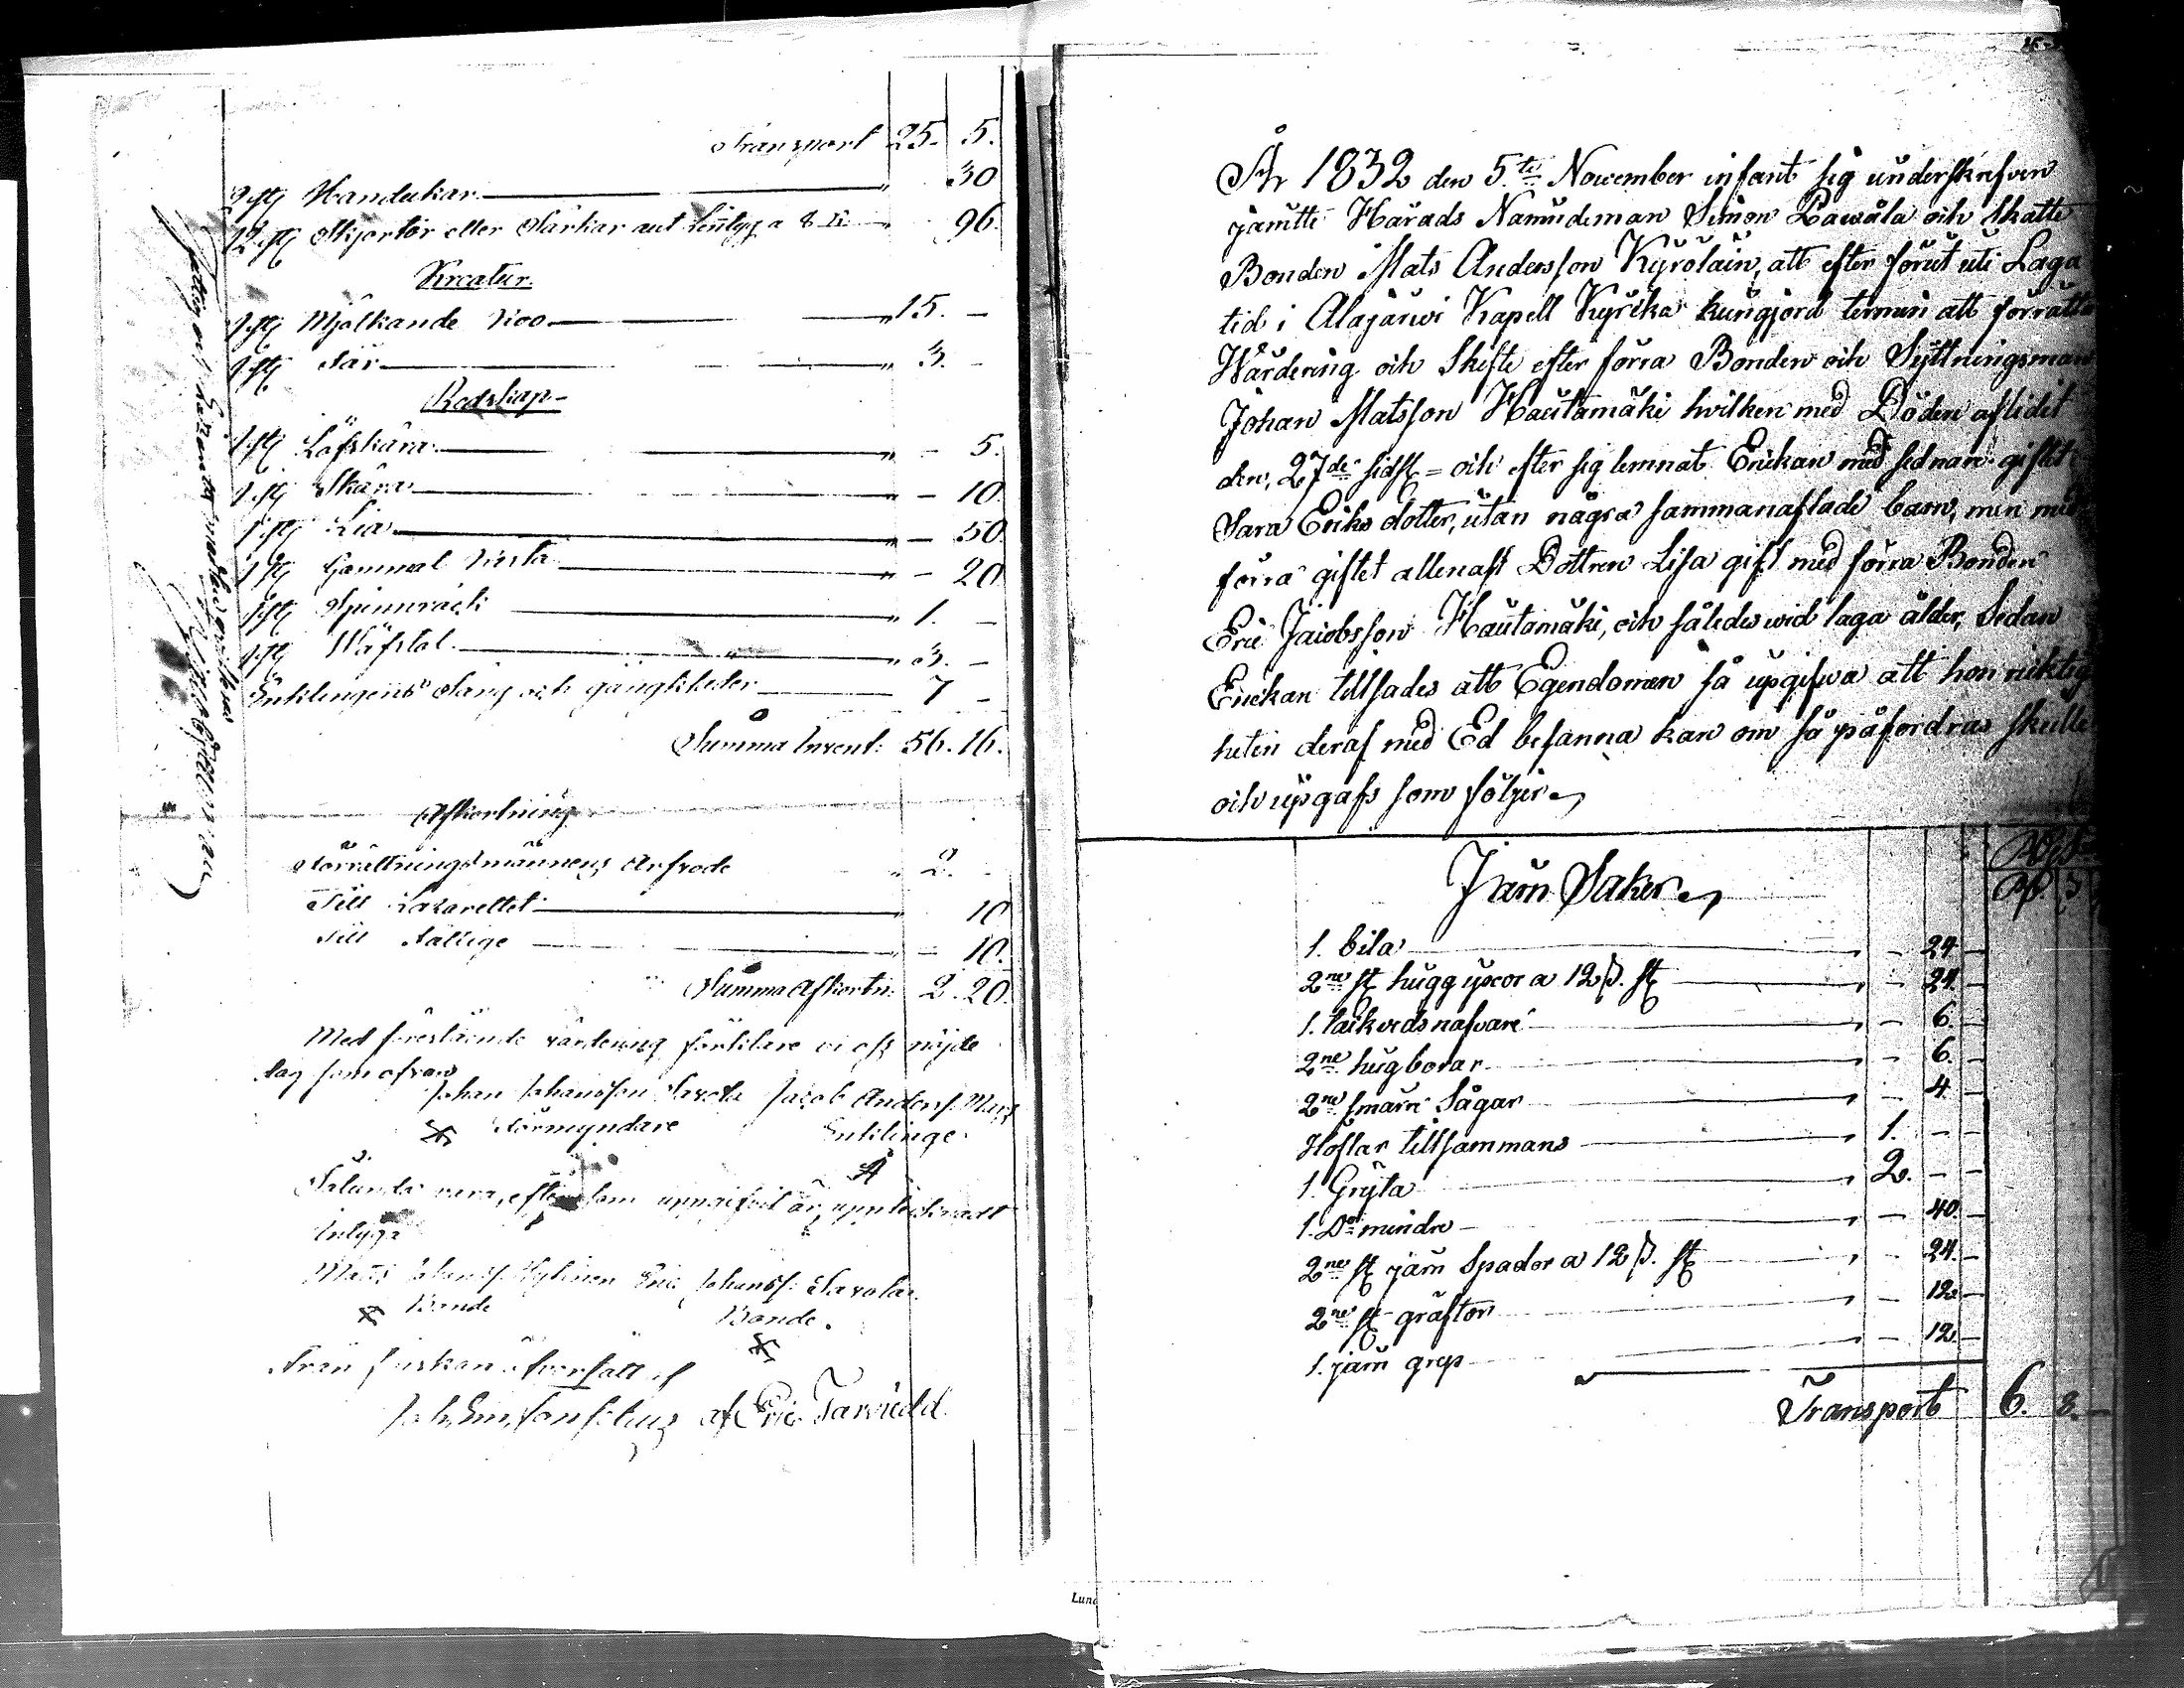 Transport 25. 5.
2 st Handukar 30
12 st Skjortor eller Särkar aut lintyg a 8 96.
Kreatur
1 st Mjölkande Koo 15. -
1 st Får 3. -
Redskap
1 st Löfskära - 5.
1 st Skära - 10
1 st Lia - 50.
1 st Gammal Kista - 20
1 st Spinnrack 1. -
1 st Wäfstol 3. -
Enklingens Säng och gångkläder 7 -
Summa Invent: 56. 16.
Afkortning
Förrättningsmännens Arfvode 2.
Till Lazarettet 10
Till Fattige - 10.
Summa Afkortn: 2. 20.
Med förestående värdering förklare vi oss nöjde
dag som ofvan
Johan Johansson Savola Jacob Anderss.
Förmyndare Enklinge
Sålunda vara, efter som uppgifvit är, upptecknadt
intyga
Mats Johanss. Eric Johanss. Savola
Bonde Bonde.
Från finskan öfversatt af
af Eric
År 1832 den 5.te November infant sig underskrefven
jämte Härads Nämndeman Simon Lawåla och Skatte
Bonden Mats Andersson Kyrölain, att efter förut uti Laga
tid i Alajärwi Kapell Kyrcka kungjord termin att förrätta
Wärdering och Skifte efter förra Bonden och Syttningsman
Johan Matsson Hautamäki hvilken med Döden aflidit
den, 27de sidstl= och efter sig lemnat Enckan med sednare giftet
Sara Eriks dotter, utan några sammanaflade barn, men med
förra giftet allenast Dottren Lisa gift med förra Bonden
Eric Jacobsson Hautamäki, och således wid laga ålder, Sedan
Enckan tillsades att Egendomen så upgifwa att hon ricktig
heten deraf med Ed besanna kan om så påfordras skulle
och upgafs som följer
Järn Saker
1. bila - 24 -
2ne st huggyxor a 12 s. st - 24. -
1. navare - 6. -
2ne hugborar - 6. -
2ne smärre Sågar - 4 -
Höflar tillsammans 1. - -
1. Gryta 2. - -
1. Do mindre - 40. -
2ne st järn Spador a 12 s. st - 24. -
2ne st gräftor - 12 -
1. järn grep - 12 -
Transport 6. 8. -